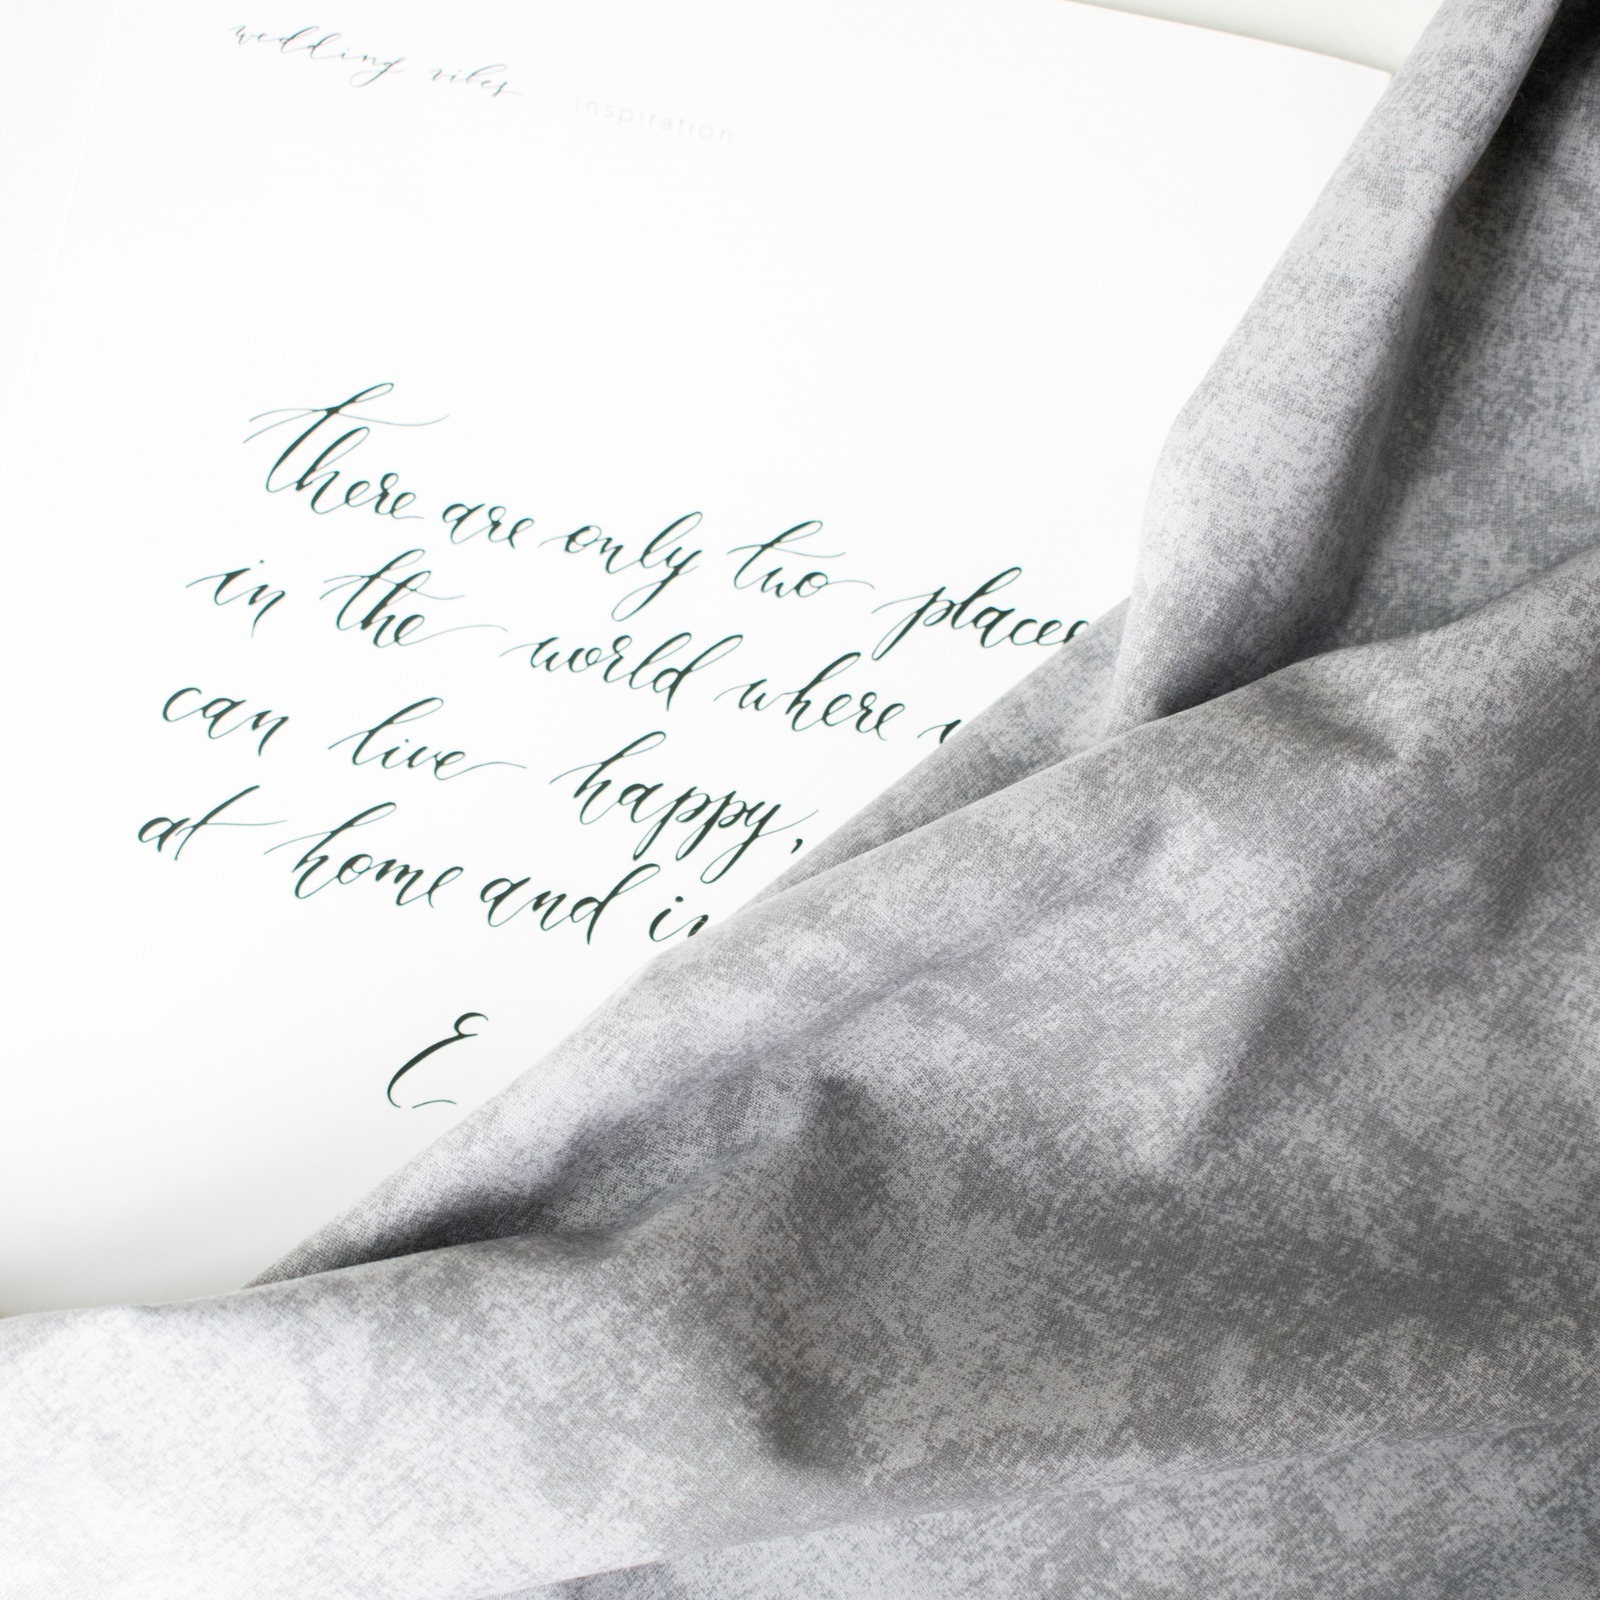 wedding vibes inspiration
there are only two places
in the world where
can live happy,
at home and in
E